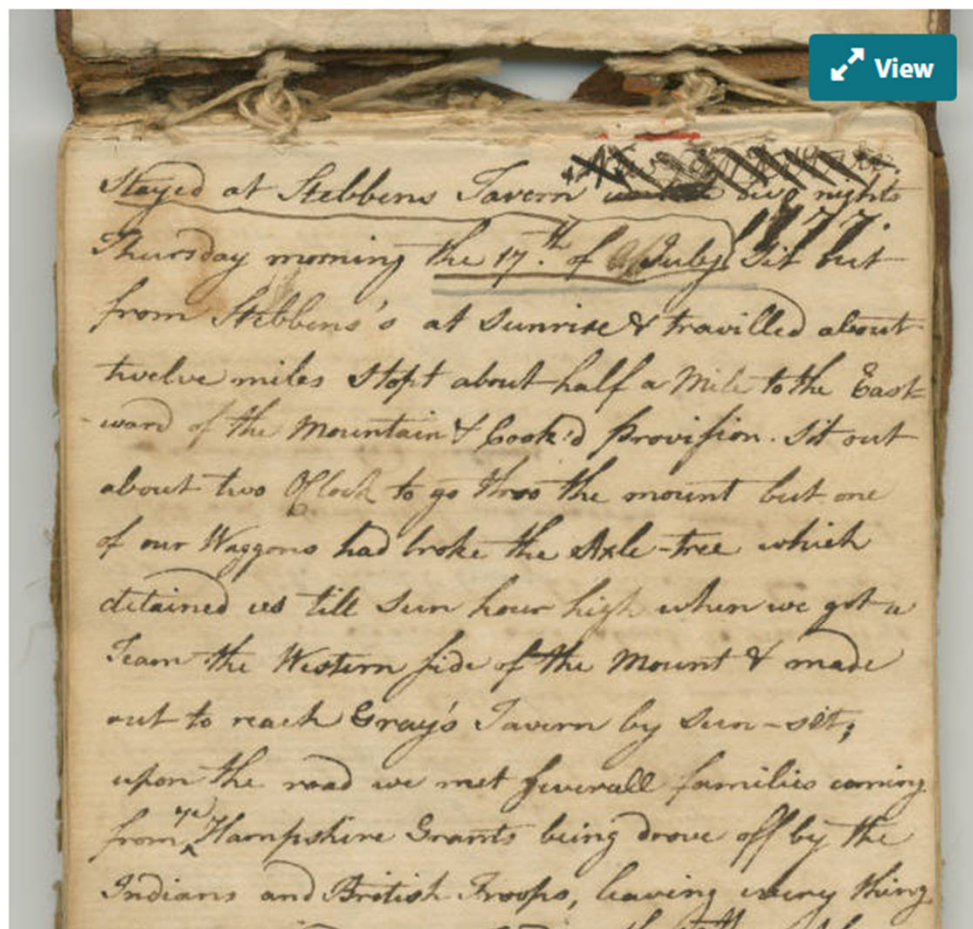 View
Stayed at Stebbens Tavern two nights
1777.
Thursday morning the 17.th of July Sit out
from Stebbens's at Sunrise & travilled about
twelve miles stopt about half a Mile to the East-
ward of the Mountain & Cook'd Provision. Sit out
about two OClock to go thro the mount but one
of our Waggons had broke the Axle-tree which
detained us till Sun hour high when we got a
Team the Western side of the Mount & made
out to reach Gray's Tavern by Sun-set;
upon the road we met severall families coming
from ye Hampshire Grants being drove off by the
Indians and British Troops, leaving every thing